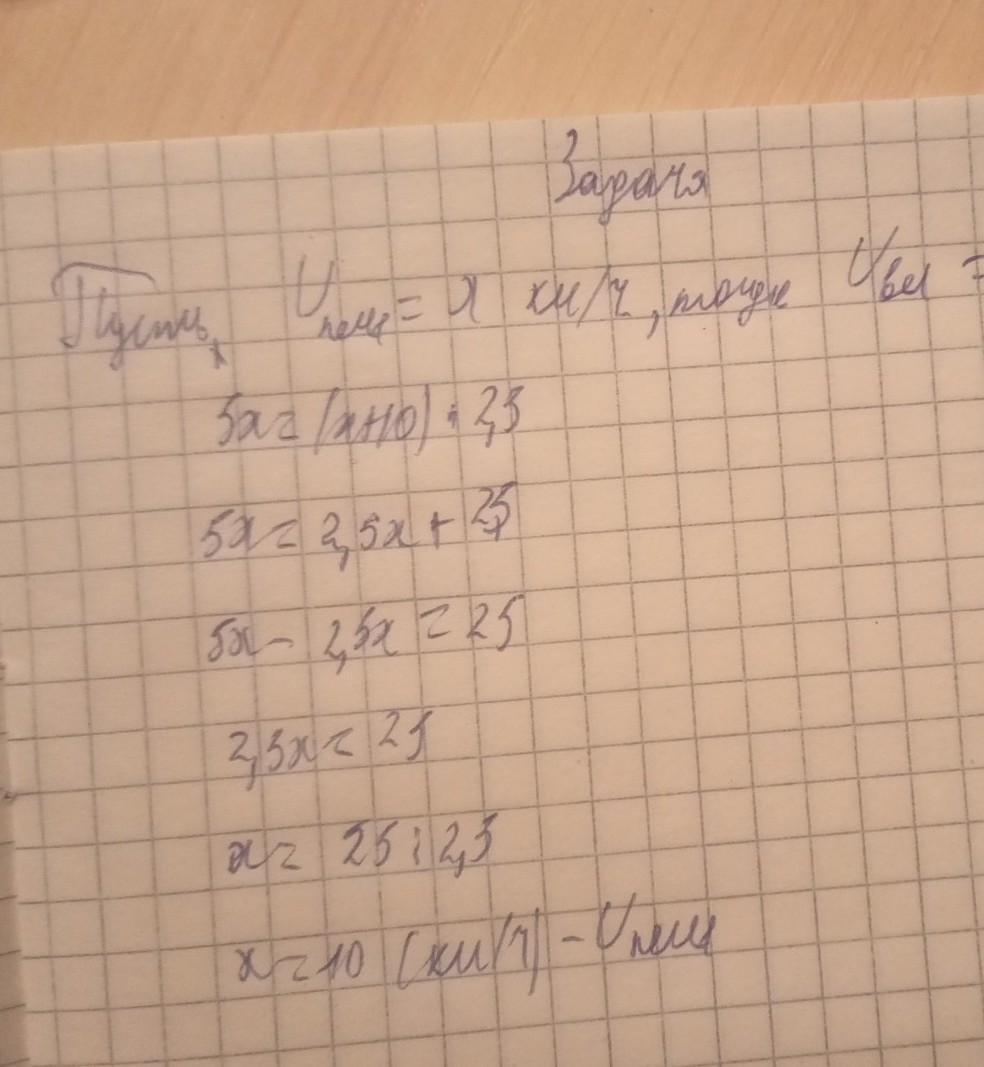 Задача
Пусть Vпеш = x км/ч, тогда Vвел =
5x = (x+10) · 2,5
5x = 2,5x + 25
5x - 2,5x = 25
2,5x = 25
x = 25 : 2,5
x = 10 (км/ч) - Vпеш